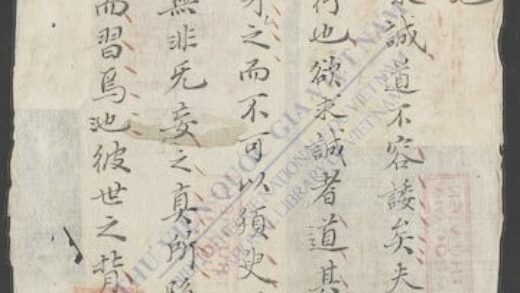 誠道不容諉矣夫
行也欲求誠者道其
求之而不可以須臾
無非无妄之真所
而習焉也彼世之背
THƯ VIỆN QUỐC GIA VIỆT NAM
NATIONAL LIBRARY OF VIETNAM